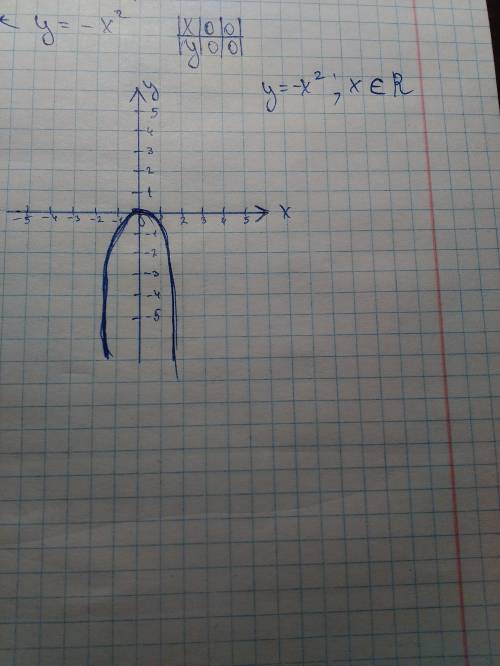 < y = - x²
x 0 0
y 0 0
y = -x² ; x ∈ R
y
5
4
3
2
1
-5 -4 -3 -2 -1 0 1 2 3 4 5 x
-1
-2
-3
-4
-5